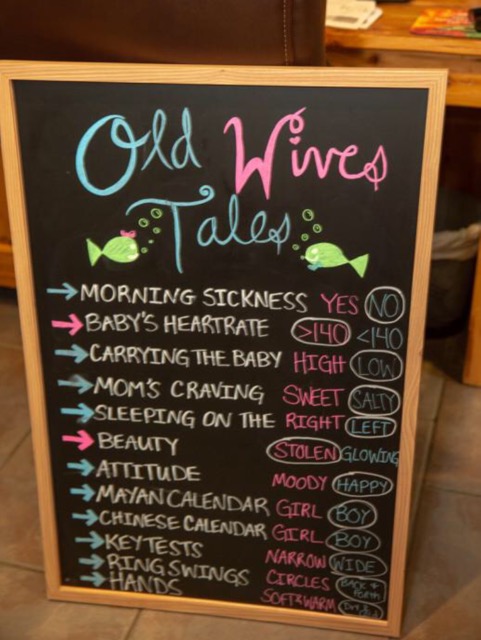 Old Wives
Tales
MORNING SICKNESS YES NO
BABY'S HEARTRATE >140 <140
CARRYING THE BABY HIGH LOW
MOM'S CRAVING SWEET SALTY
SLEEPING ON THE RIGHT LEFT
BEAUTY STOLEN GLOWING
ATTITUDE MOODY HAPPY
MAYAN CALENDAR GIRL BOY
CHINESE CALENDAR GIRL BOY
KEY TESTS NARROW WIDE
RING SWINGS CIRCLES BACK & FORTH
HANDS SOFT & WARM